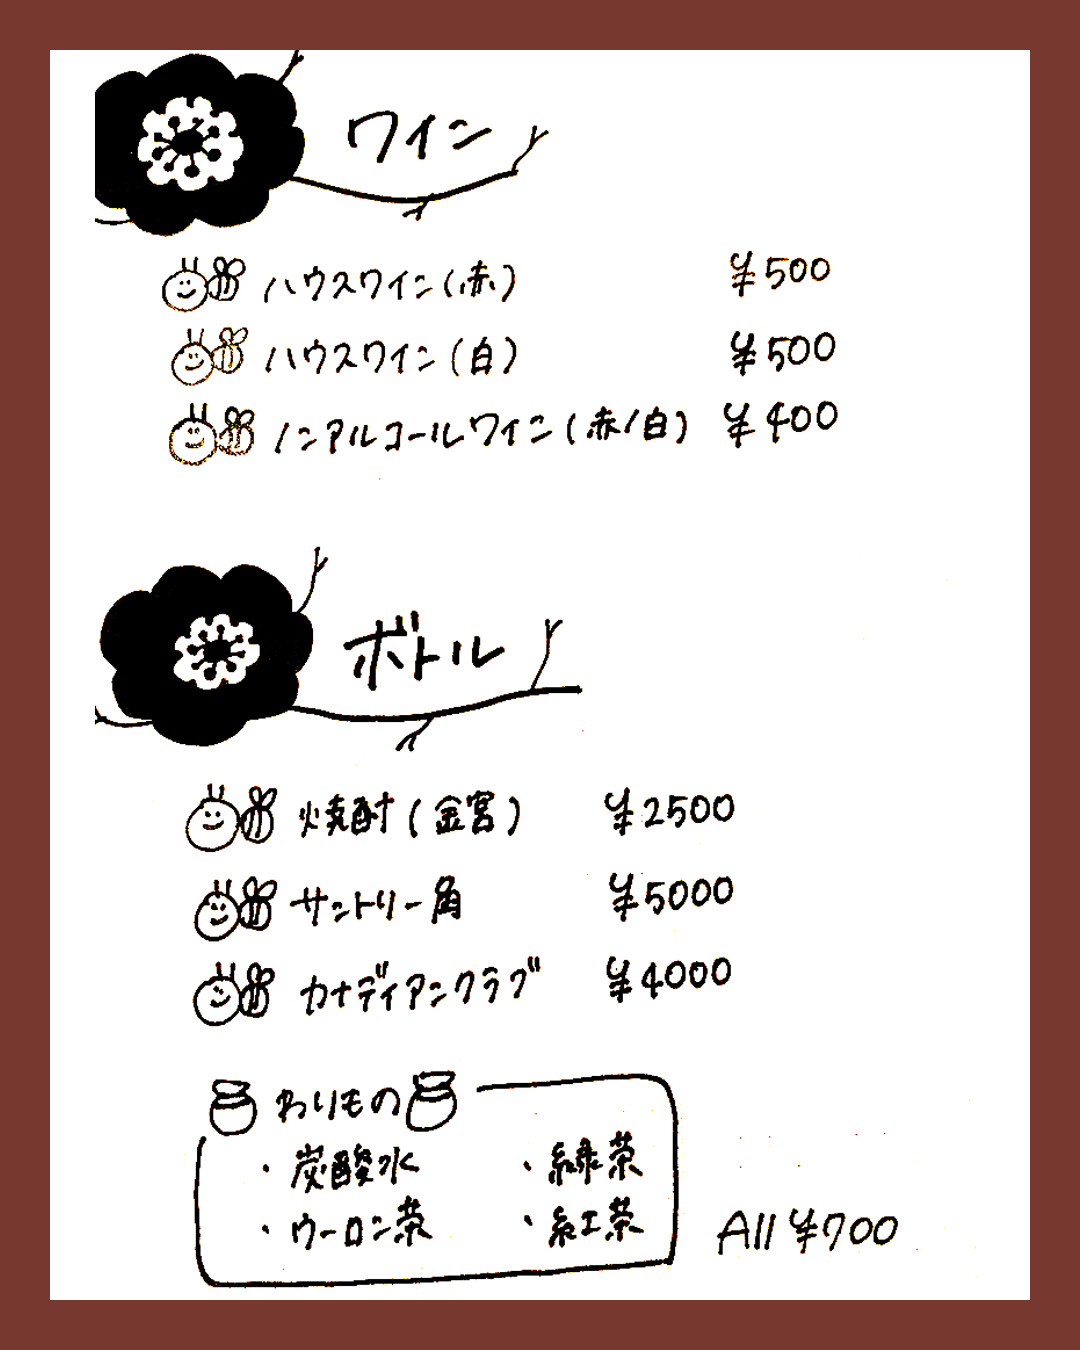 ワイン
ハウスワイン(赤) ¥500
ハウスワイン(白) ¥500
ノンアルコールワイン(赤/白) ¥400
ボトル
焼酎(金宮) ¥2500
サントリー角 ¥5000
カナディアンクラブ ¥4000
わりもの
・炭酸水 ・緑茶
・ウーロン茶 ・紅茶
All ¥700